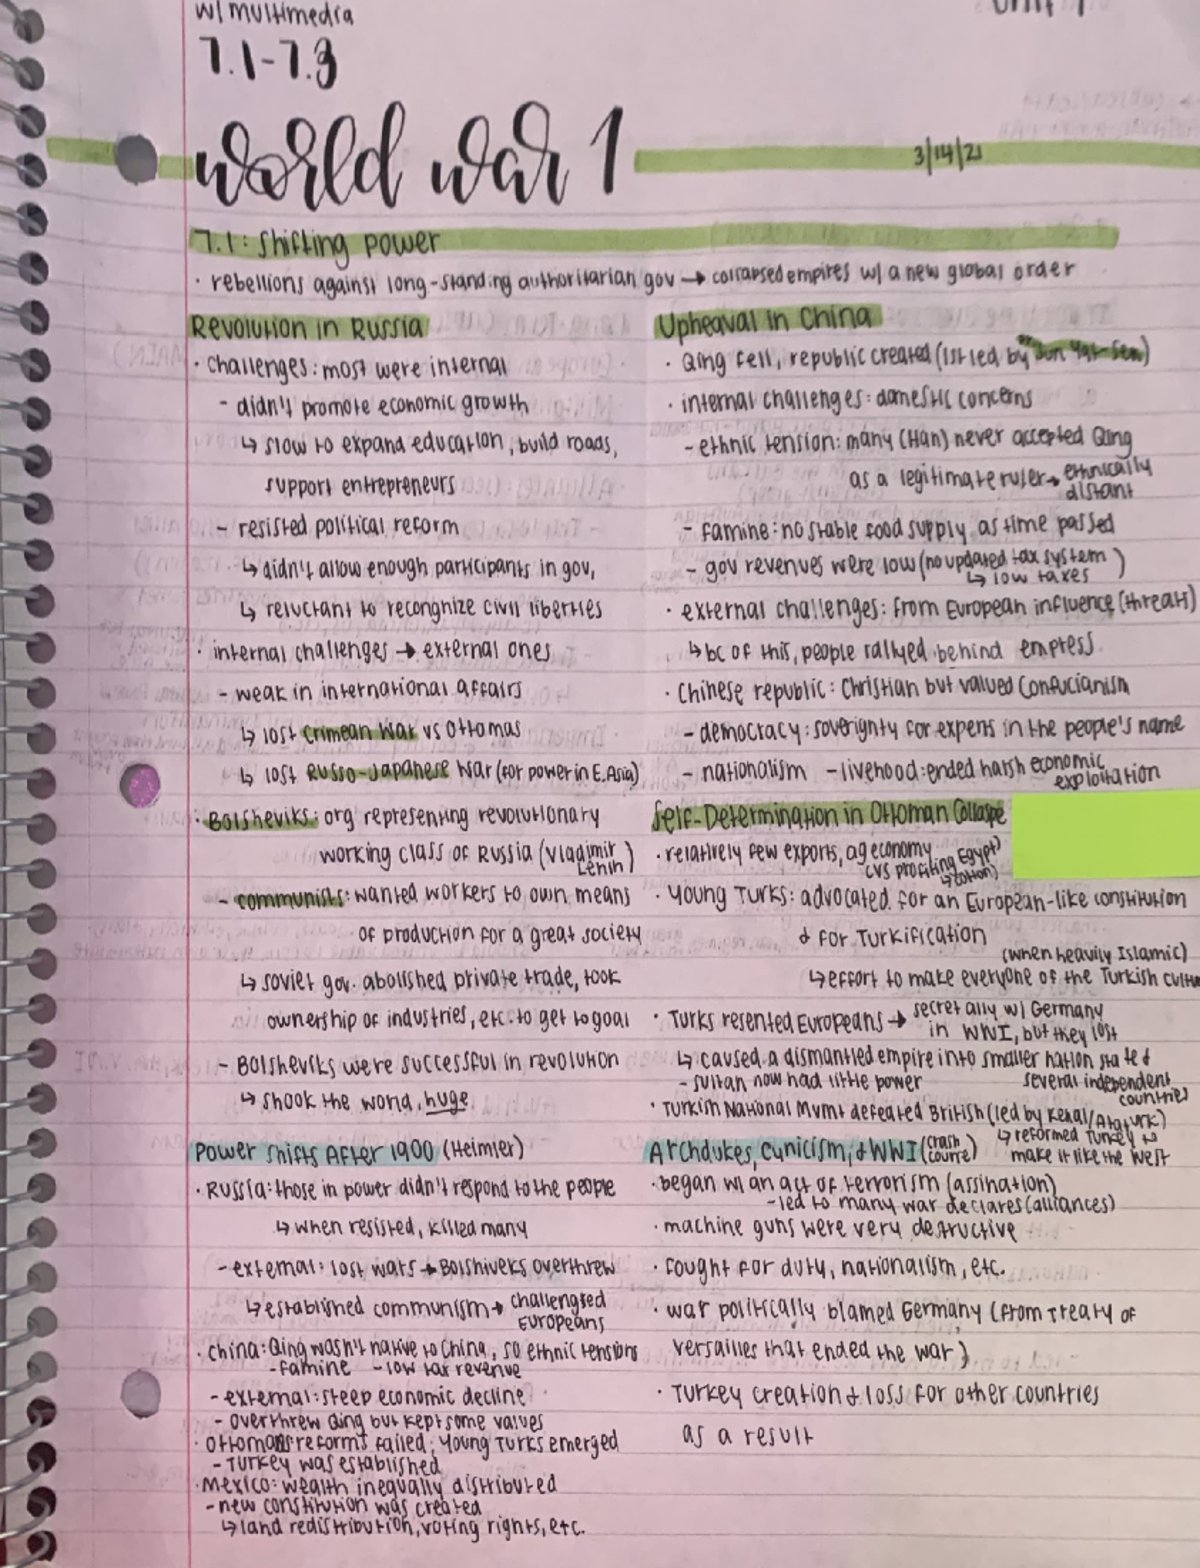 w/ multimedia
7.1-7.3
world war 1
3/14/21
7.1: Shifting power
· rebellions against long-standing authoritarian gov → collapsed empires w/ a new global order
Revolution in Russia
· Challenges: most were internal
- didn't promote economic growth
↳ slow to expand education, build roads,
support entrepreneurs
- resisted political reform
↳ didn't allow enough participants in gov,
↳ reluctant to recongnize civil liberties
· internal challenges → external ones
- weak in international affairs
↳ lost Crimean War vs Ottomas
↳ lost Russo-Japanese War (for power in E. Asia)
· Bolsheviks: org representing revolutionary
working class of Russia (Vladimir
Lenin)
- communists: wanted workers to own means
of production for a great society
↳ soviet gov. abolished private trade, took
ownership of industries, etc. to get to goal
- Bolsheviks were successful in revolution
↳ shook the world, huge
Power Shifts After 1900 (Heimler)
· Russia: those in power didn't respond to the people
↳ when resisted, killed many
- external: lost wars → Bolshiveks overthrew
↳ established communism → challengted
Europeans
· China: Qing wasn't native to China, so ethnic tensions
- famine - low tax revenue
- external: steep economic decline
- overthrew Qing but kept some values
· Ottomans reforms failed, Young Turks emerged
- Turkey was established
· Mexico: wealth inequally distributed
- new constitution was created
↳ land redistribution, voting rights, etc.
Upheaval in China
· Qing fell, republic created (1st led by Sun Yat-Sen)
· internal challenges: domestic concerns
- ethnic tension: many (Han) never accepted Qing
as a legitimate ruler → ethnically
distant
- famine: no stable food supply as time passed
- gov revenues were low (no updated tax system)
↳ low taxes
· external challenges: from European influence (threat)
↳ bc of this, people rallyed behind empress
· Chinese republic: Christian but valued Confucianism
- democracy: soverignty for expens in the people's name
- nationalism - livehood: ended harsh economic
exploitation
Self-Determination in Ottoman Collaspe
· relatively few exports, ag economy
(vs profiting Egypt)
↳ cotton)
· Young Turks: advocated for an European-like constitution
& for Turkification
(when heavily Islamic)
↳ effort to make everyone of the Turkish
· Turks resented Europeans → secret ally w/ Germany
in WWI, but they lost
↳ caused a dismantled empire into smaller nation state &
several independent
countries
- sultan now had little power
· Turkish National Mvmt defeated British (led by Kemal/Ataturk)
↳ reformed Turkey to
make it like the West
Archdukes, Cynicism, & WWI (Crash
Course)
· began w/ an act of terrorism (assination)
- led to many war declares (alliances)
· machine guns were very destructive
· fought for duty, nationalism, etc.
· war politically blamed Germany (from Treaty of
Versailles that ended the war)
· Turkey creation & loss for other countries
as a result